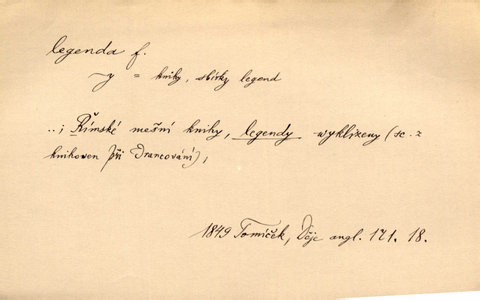 legenda f.
~y = knihy, sbírky legend
..; Římské mešní knihy, legendy wyklizeny (sc. z
knihoven při drancování),
1849 Tomíček, Děje angl. 171. 18.